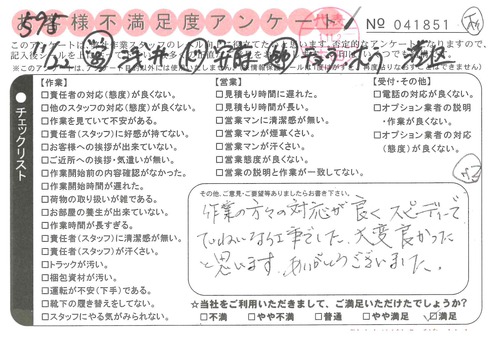 様不満足度アンケート
No 041851
11/22
チェックリスト
【作業】
□責任者の対応(態度)が良くない。
□他のスタッフの対応(態度)が良くない。
□作業を見ていて不安がある。
□責任者(スタッフ)に好感が持てない。
□お客様への挨拶が出来ていない。
□ご近所への挨拶・気遣いが無い。
□作業開始前の内容確認がなかった。
□作業開始時間が遅れた。
□荷物の取り扱いが雑である。
□お部屋の養生が出来ていない。
□作業時間が長すぎる。
□責任者(スタッフ)に清潔感が無い。
□責任者(スタッフ)が汗くさい。
□トラックが汚い。
□梱包資材が汚い。
□運転が不安(下手)である。
□靴下の履き替えをしてない。
□スタッフにやる気がみられない。
【営業】
□見積もり時間に遅れた。
□見積もり時間が長い。
□営業マンに清潔感が無い。
□営業マンが煙草くさい。
□営業マンが汗くさい。
□営業態度が良くない。
□営業の説明と作業が一致してない。
【受付・その他】
□電話の対応が良くない。
□オプション業者の説明
・作業が良くない。
□オプション業者の対応
(態度)が良くない。
その他、ご意見・ご要望等ありましたらお書き下さい。
作業の方々の対応が良く スピーディーで
ていねいな工事でした。大変良かった
と思います。ありがとうございました。
☆当社をご利用いただきまして、ご満足いただけたでしょうか?
□不満 □やや不満 □普通 □やや満足 ☑満足